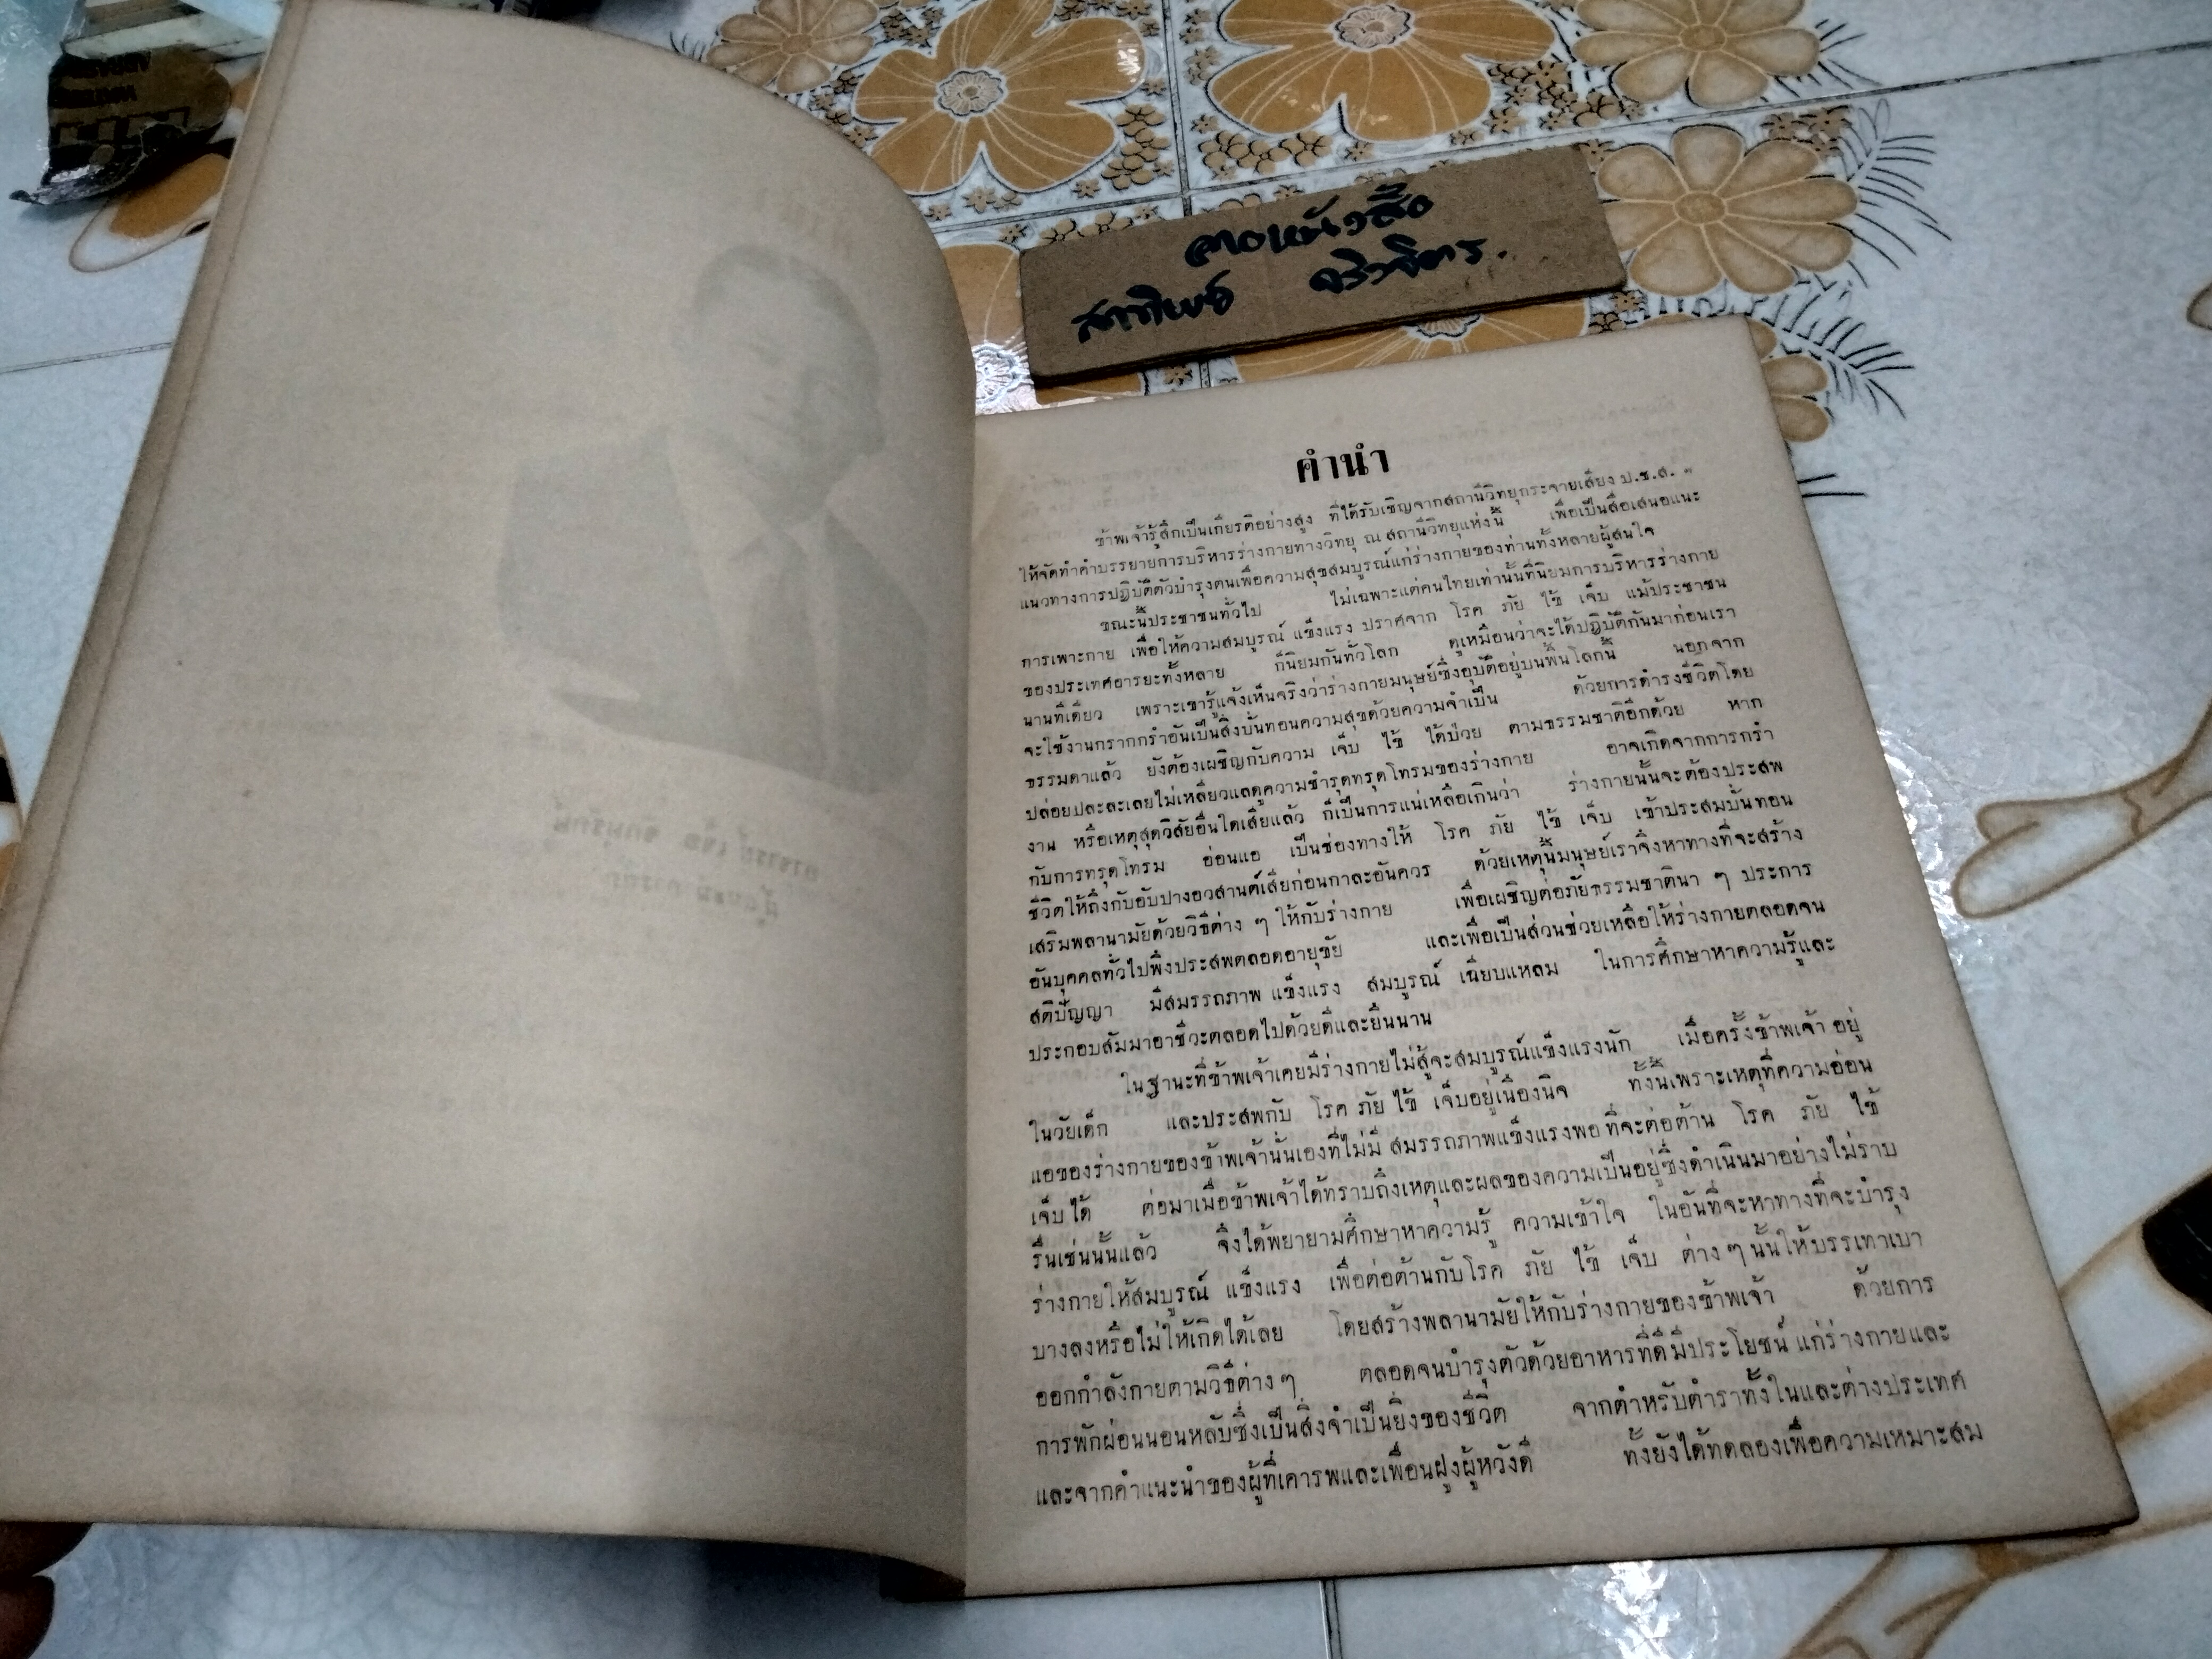 คำนำ
ข้าพเจ้ารู้สึกเป็นเกียรติอย่างสูง ที่ได้รับเชิญจากสถานีวิทยุกระจายเสียง ป.ช.ส. ๗
ให้จัดทำคำบรรยายการบริหารร่างกายทางวิทยุ ณ สถานีวิทยุแห่งนี้ เพื่อเป็นสื่อเสนอแนะ
แนวทางการปฏิบัติตัวบำรุงตนเพื่อความสุขสมบูรณ์แก่ร่างกายของท่านทั้งหลายผู้สนใจ
ขณะนี้ประชาชนทั่วไป ไม่เฉพาะแต่คนไทยเท่านั้นที่นิยมการบริหารร่างกาย
การเพาะกาย เพื่อให้ความสมบูรณ์ แข็งแรง ปราศจาก โรค ภัย ไข้ เจ็บ แม้ประชาชน
ของประเทศอารยะทั้งหลาย ก็นิยมกันทั่วโลก ดูเหมือนว่าจะได้ปฏิบัติกันมาก่อนเรา
นานทีเดียว เพราะเขารู้แจ้งเห็นจริงว่าร่างกายมนุษย์ซึ่งอุบัติอยู่บนพื้นโลกนี้ นอกจาก
จะใช้งานกรากกรำอันเป็นสิ่งบั่นทอนความสุขด้วยความจำเป็น ด้วยการดำรงชีวิตโดย
ธรรมดาแล้ว ยังต้องเผชิญกับความ เจ็บ ไข้ ได้ป่วย ตามธรรมชาติอีกด้วย หาก
ปล่อยปละละเลยไม่เหลียวแลดูความชำรุดทรุดโทรมของร่างกาย อาจเกิดจากการกรำ
งาน หรือเหตุสุดวิสัยอื่นใดเสียแล้ว ก็เป็นการแน่เหลือเกินว่า ร่างกายนั้นจะต้องประสพ
กับการทรุดโทรม อ่อนแอ เป็นช่องทางให้ โรค ภัย ไข้ เจ็บ เข้าประสมบั่นทอน
ชีวิตให้ถึงกับอับปางอวสานต์เสียก่อนกาละอันควร ด้วยเหตุนี้มนุษย์เราจึงหาทางที่จะสร้าง
เสริมพลานามัยด้วยวิธีต่าง ๆ ให้กับร่างกาย เพื่อเผชิญต่อภัยธรรมชาตินา ๆ ประการ
อันบุคคลทั่วไปพึงประสพตลอดอายุขัย และเพื่อเป็นส่วนช่วยเหลือให้ร่างกายตลอดจน
สติปัญญา มีสมรรถภาพ แข็งแรง สมบูรณ์ เฉียบแหลม ในการศึกษาหาความรู้และ
ประกอบสัมมาอาชีวะตลอดไปด้วยดีและยืนนาน
ในฐานะที่ข้าพเจ้าเคยมีร่างกายไม่สู้จะสมบูรณ์แข็งแรงนัก เมื่อครั้งข้าพเจ้า อยู่
ในวัยเด็ก และประสพกับ โรค ภัย ไข้ เจ็บอยู่เนืองนิจ ทั้งนี้เพราะเหตุที่ความอ่อน
แอของร่างกายของข้าพเจ้านั่นเองที่ไม่มี สมรรถภาพแข็งแรงพอ ที่จะต่อต้าน โรค ภัย ไข้
เจ็บ ได้ ต่อมาเมื่อข้าพเจ้าได้ทราบถึงเหตุและผลของความเป็นอยู่ซึ่งดำเนินมาอย่างไม่ราบ
รื่นเช่นนั้นแล้ว จึงได้พยายามศึกษาหาความรู้ ความเข้าใจ ในอันที่จะหาทางที่จะบำรุง
ร่างกายให้สมบูรณ์ แข็งแรง เพื่อต่อต้านกับโรค ภัย ไข้ เจ็บ ต่าง ๆ นั้นให้บรรเทาเบา
บางลงหรือไม่ให้เกิดได้เลย โดยสร้างพลานามัยให้กับร่างกายของข้าพเจ้า ด้วยการ
ออกกำลังกายตามวิธีต่าง ๆ ตลอดจนบำรุงตัวด้วยอาหารที่ดีมีประโยชน์ แก่ร่างกายและ
การพักผ่อนนอนหลับซึ่งเป็นสิ่งจำเป็นยิ่งของชีวิต จากตำหรับตำราทั้งในและต่างประเทศ
และจากคำแนะนำของผู้ที่เคารพและเพื่อนฝูงผู้หวังดี ทั้งยังได้ทดลองเพื่อความเหมาะสม